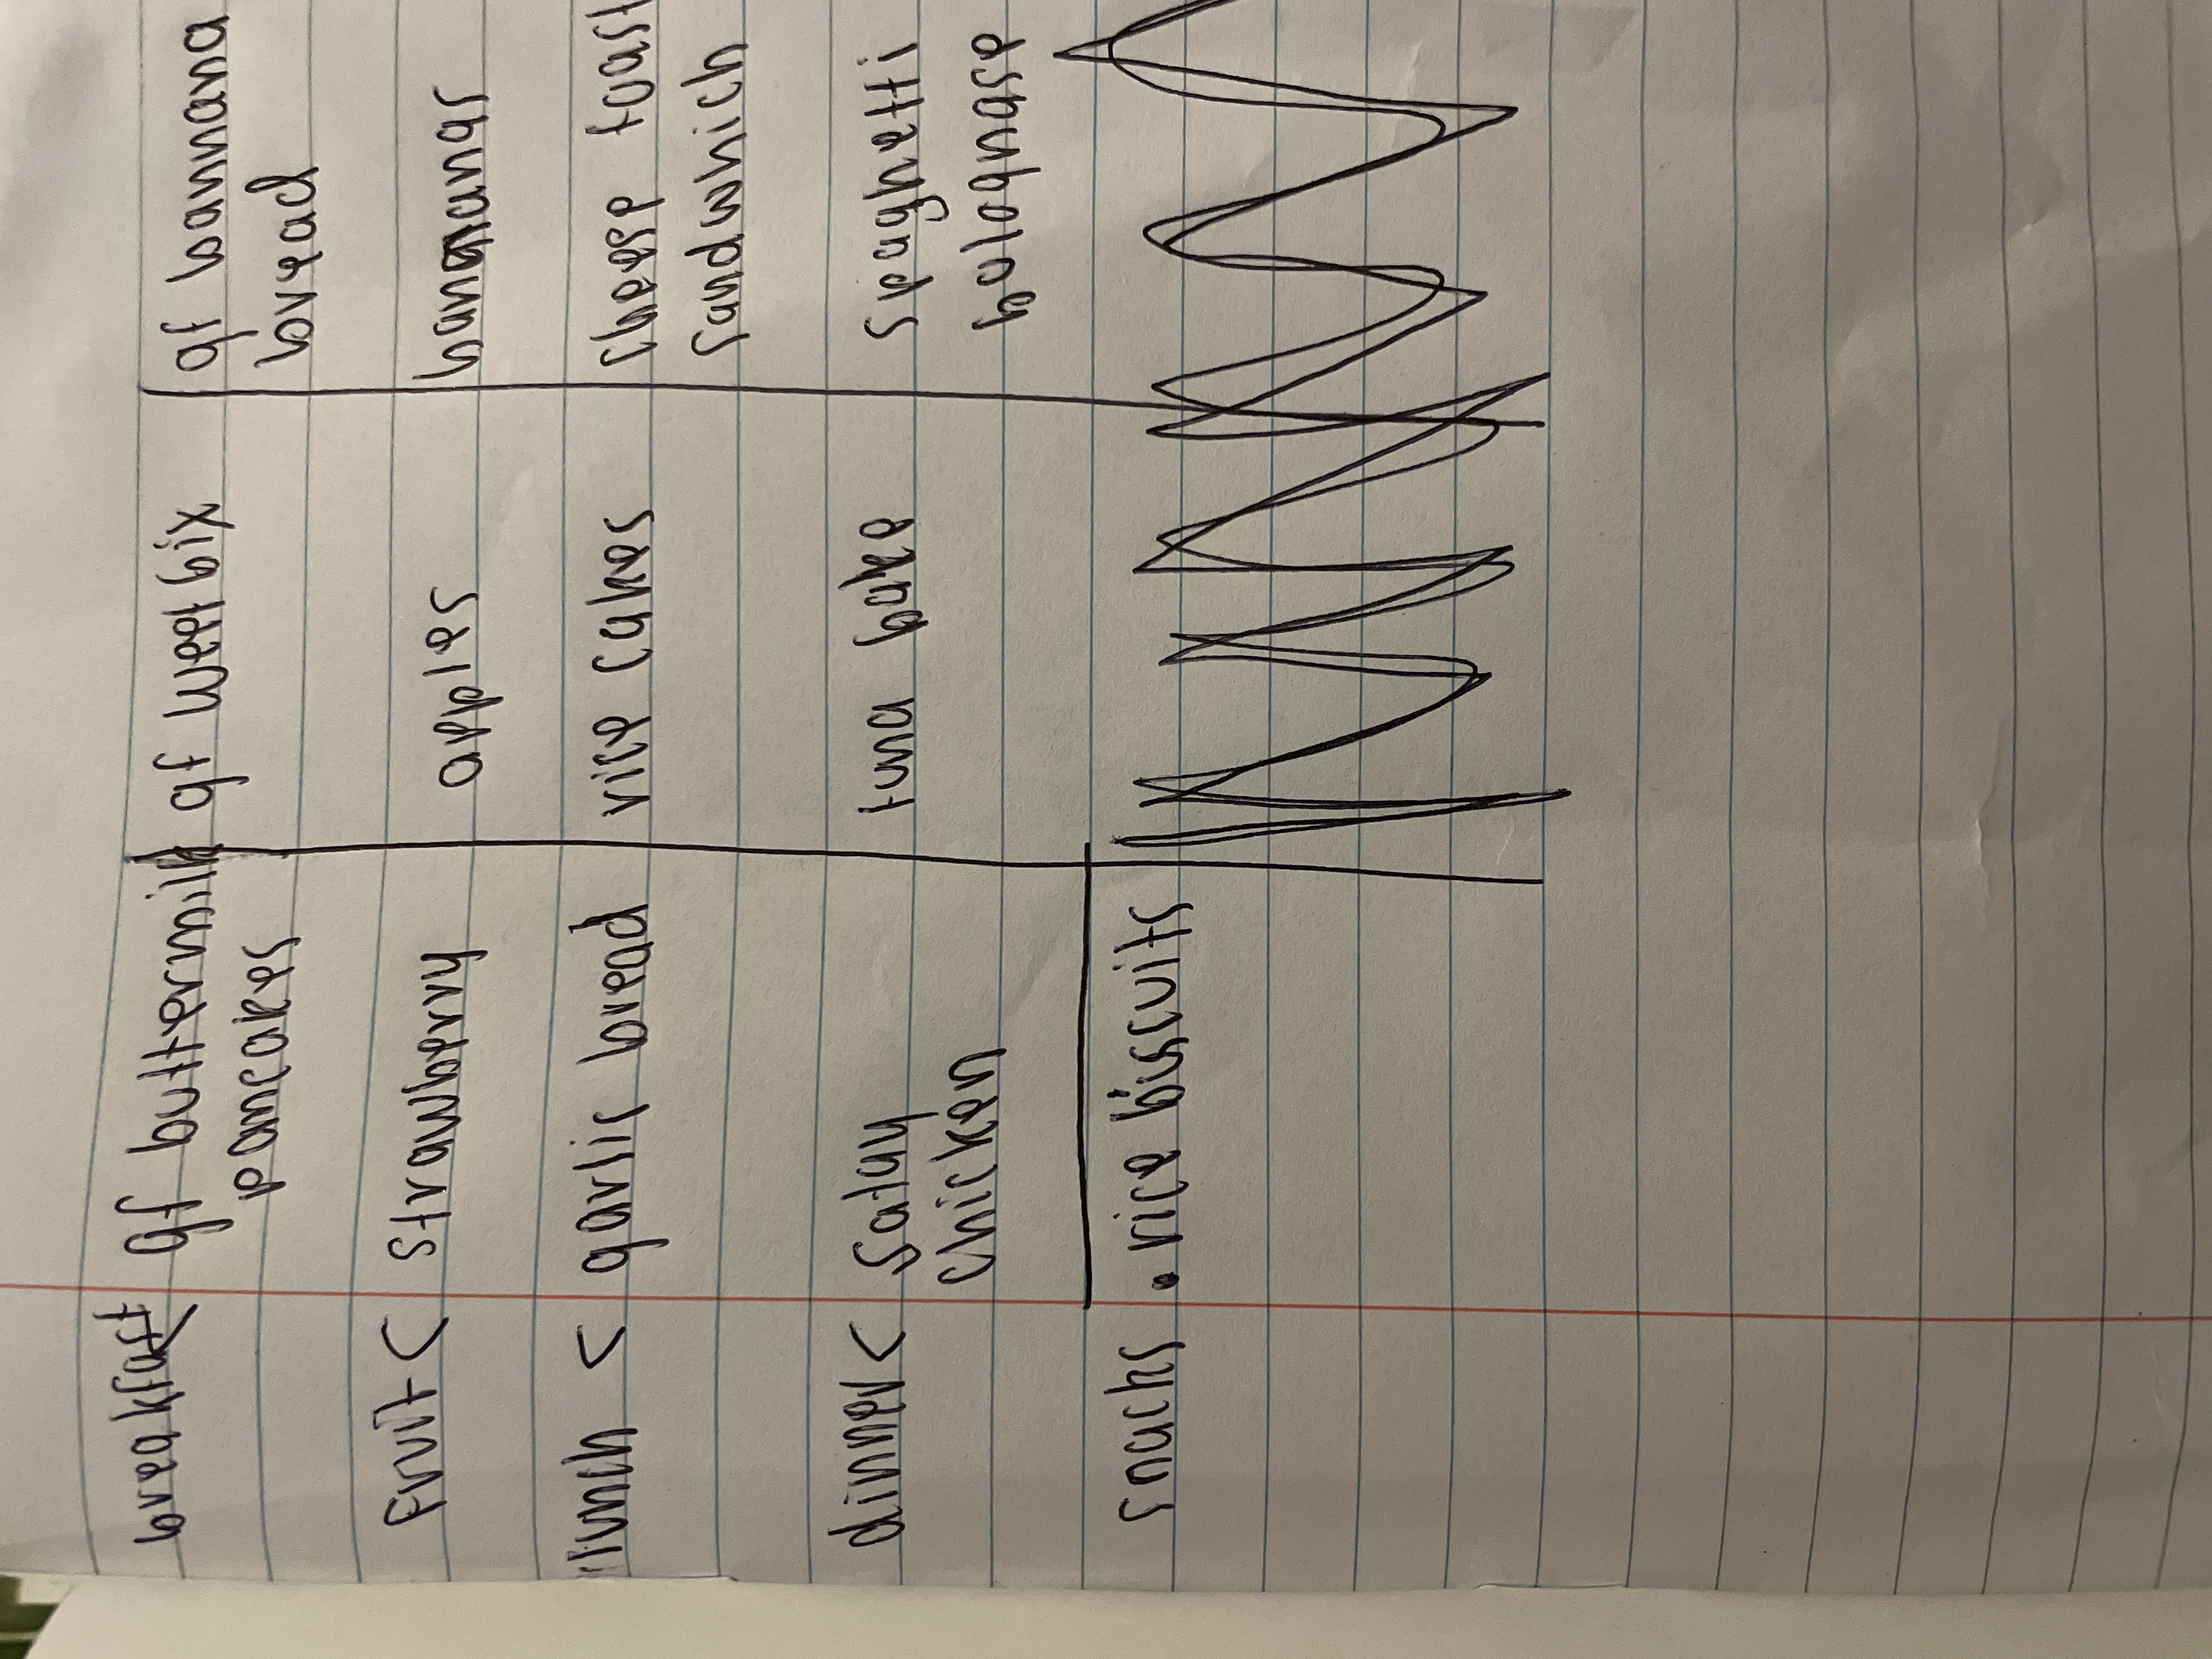 breakfast gf buttermilk gf weet bix gf bannana
pancakes bread
Fruit < strawberry apples bananas
lunch < garlic bread rice cakes cheese toast
sandwhich
dinner < Satay tuna bake spaghetti
Chicken bolognase
snacks • rice buscuits